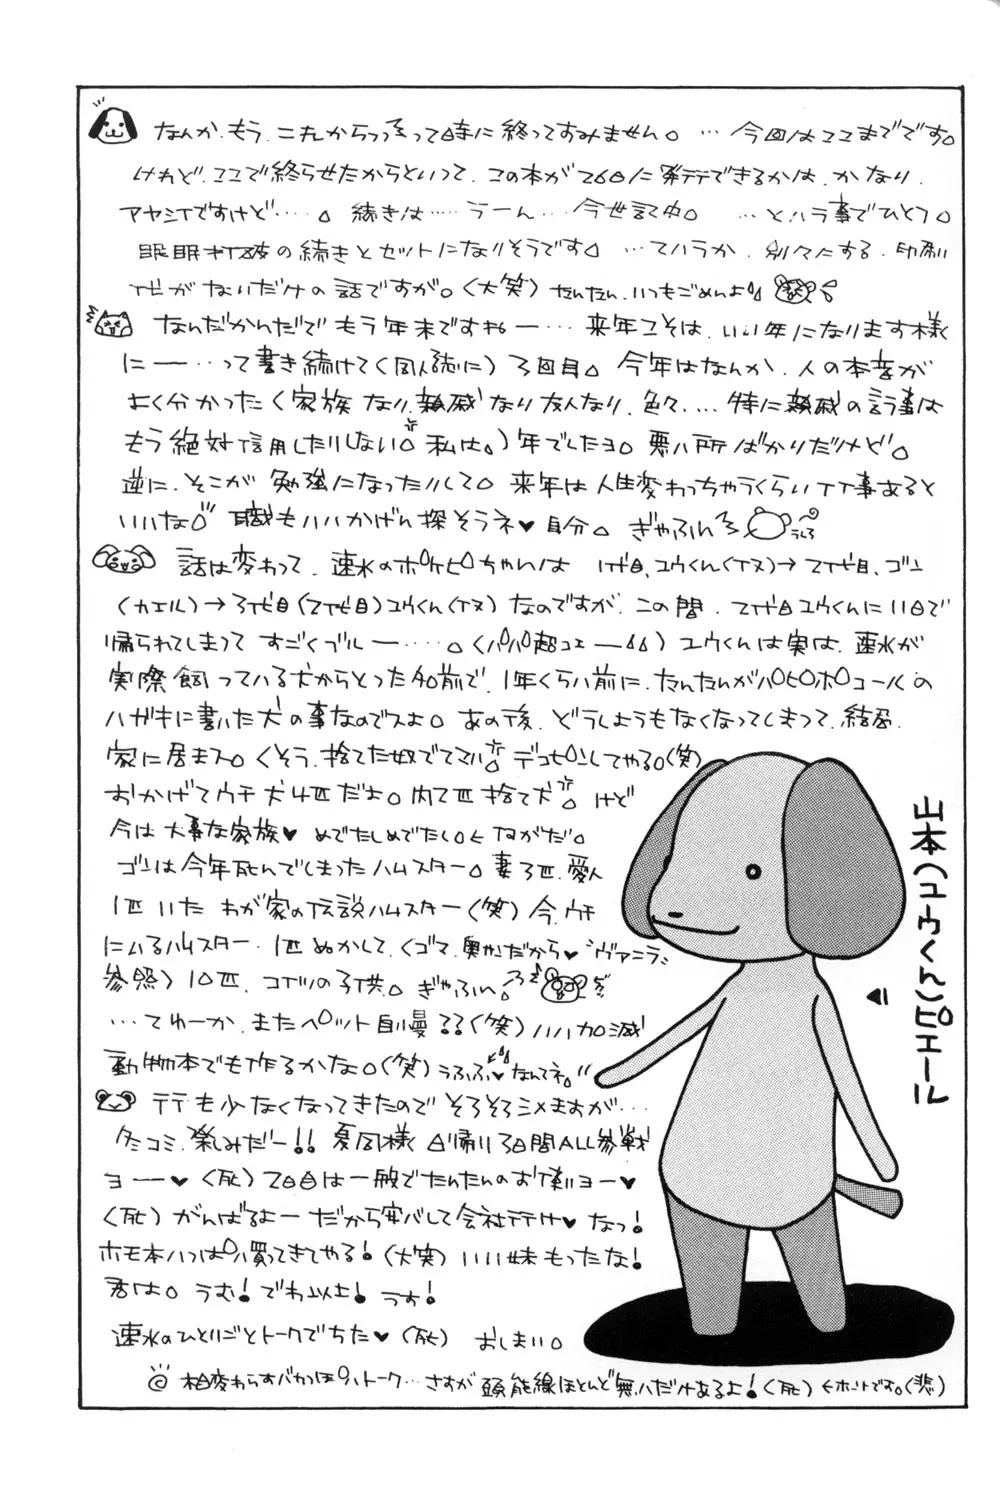 なんか、もう、これからっつーって時に終ってすみません。… 今回はここまでです。
けれど、ここで終らせたからといって、この本が26日に発行できるかは、かなり、
アヤシイですけど‥‥。続きは……うーん…今世記中。…とハう事でひとつ。
眠眠打破の続きとセットになりそうです。…てハうか、別々にする、印刷
代がないだけの話ですが。(大笑) たんたん、いつもごめんよ
なんだかんだで もう年末ですねー… 来年こそは、いい年になります様
にー…って書き続けて(同人誌に) 3回目。今年はなんか、人の本音が
よく分かった(家族なり、親戚なり友人なり、色々… 特に親戚の言う事は
もう絶対信用したりしない。私は。)年でしたヨ。悪い所ばかりだけど。
逆に、そこが 勉強になったりして。来年は人生変わっちゃうくらいイイ事あると
いいな。職もいいかげん探そうネ♥自分。ぎゃふん
話は変わって、速水のポケピのちゃんは 1代目、ユウくん(イヌ)→2代目、ゴン
(カエル)→3代目(2代目)ユウくん(イヌ)なのですが、この間、2代目ユウくんに11日で
帰られてしまって すごくブルー……。(パパ超コエー) ユウくんは実は、速水が
実際飼っている犬からとった名前で、1年くらい前に、たんたんがパピポコールの
ハガキに書いた犬の事なのですよ。あの後、どうしようもなくなってしまって、結局、
家に居ます。くそう、捨てた奴でてこい。デコピンしてやる。(笑)
おかげでウチ犬4匹だよ。内2匹捨て犬。けど
今は大事な家族♥ めでたしめでたし。← ながだ。
ゴンは今年死んでしまったハムスター。妻3匹、愛人
1匹いた わが家の伝説ハムスター(笑) 今、ウチ
にいるハムスター、1匹ぬかして、(ゴマ、奥がだから♥ヴァニラ
参照) 10匹、コイツの子供。ぎゃふん。
…てゆーか、またペット自慢??(笑) いい加減
動物本でも作るかな。(笑) うふふ♥なんてネ。
行も少なくなってきたので そろそろシメますが…
冬コミ、楽しみだー!! 夏同様 日帰り3日間ALL参戦
ヨー♥ (死) 2日目は一般でたんたんのお供ヨー♥
(死) がんばるよー だから安心して会社行け♥ なっ!
ホモ本いっぱい買ってきてやる!(大笑) いい妹もったな!
君は。うむ! でわ以上! うす!
速水のひとりごとトークでちた♥ (死) おしまい。
◎相変わらずバカっぽいトーク… さすが 頭能線ほとんど無いだけあるよ!(死) ←ホントです。(悲)
山本(ユウくん)ピエール